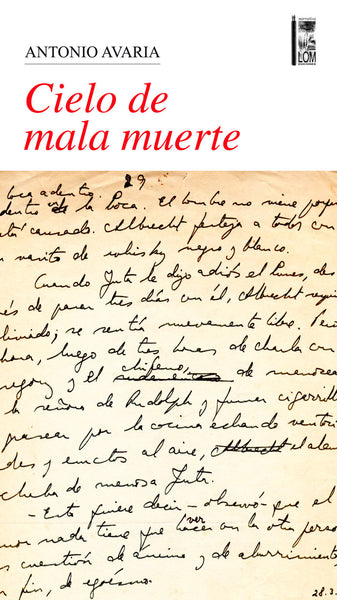 ANTONIO AVARIA
narrativa
LOM
Cielo de
mala muerte
29
loca adentro
dentro de la boca. El hombre no viene porque
está cansado. Albrecht festeja a todos con
vasito de whisky negro y blanco.
Cuando Juta le dijo adiós el lunes, des
és de pasar tres días con él, Albrecht
livido; se sentía nuevamente libre. Pero
hora, luego de tres horas de charla con
egory y el chileno, de
la señora de Rudolph y fumar cigarrill
pasear por la cocina echando ventosi
des y eructos al aire, Albrecht el alem
cheba de menosa Juta.
- Esto quiere decir - observó - que el
mor nada tiene que ver con la otra perso
es cuestión de ánimo y de aburrimiento
fin, de egoísmo.
28.3.